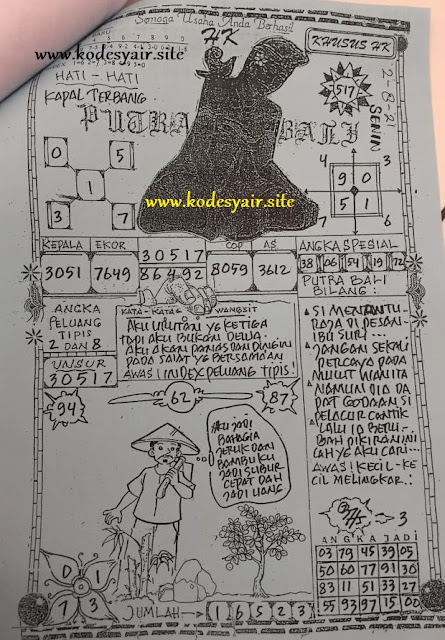 Semoga Usaha Anda Berhasil
HK
KHUSUS HK
www.kodesyair.site
HATI - HATI
KAPAL TERBANG
PUTRA BALI
517
2-8-21
SENIN
0 5
1
3 7
www.kodesyair.site
4 3
9 0
5 1
7 4
KEPALA EKOR
3051 7649
30517
86492
COP AS
8059 3612
ANGKA SPESIAL
38 06 54 19 72
PUTRA BALI
BILANG:
ANGKA
PELUANG
TIPIS
2 DAN 8
UNSUR
30517
KATA-KATA & WANGSIT
AKU URUTAN YG KETIGA
TAPI AKU BUKAN DEWA
AKU AKAN PANAS DAN DINGIN
PADA SAAT YG BERSAMAAN
AWAS! INDEX PELUANG TIPIS!
94
62
87
SI MENANTU
RAJA DI PESAN
IBU SURI
JANGAN SEKALI
PERCAYA PADA
MULUT WANITA
NAMUN DIA DA
PAT GODAAN SI
PELACUR CANTIK
LALU IA BERU-
BAH DIKIRA INI
LAH YG AKU CARI
AWAS! KECIL-KE
CIL MELINGKAR.!
AKU JADI
BAHAGIA
JERUK DAN
BAMBU KU
JADI SUBUR
CEPAT DAH
JADI UANG
3
ANGKA JADI
03 79 45 39 05
50 60 77 91 30
83 11 51 33 27
55 93 97 15 00
0 1
7 3
JUMLAH → 1 6 5 2 3